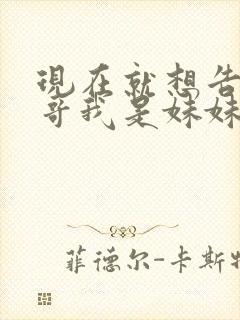 現在就想告
哥我是妹妹
菲德尔-卡斯特